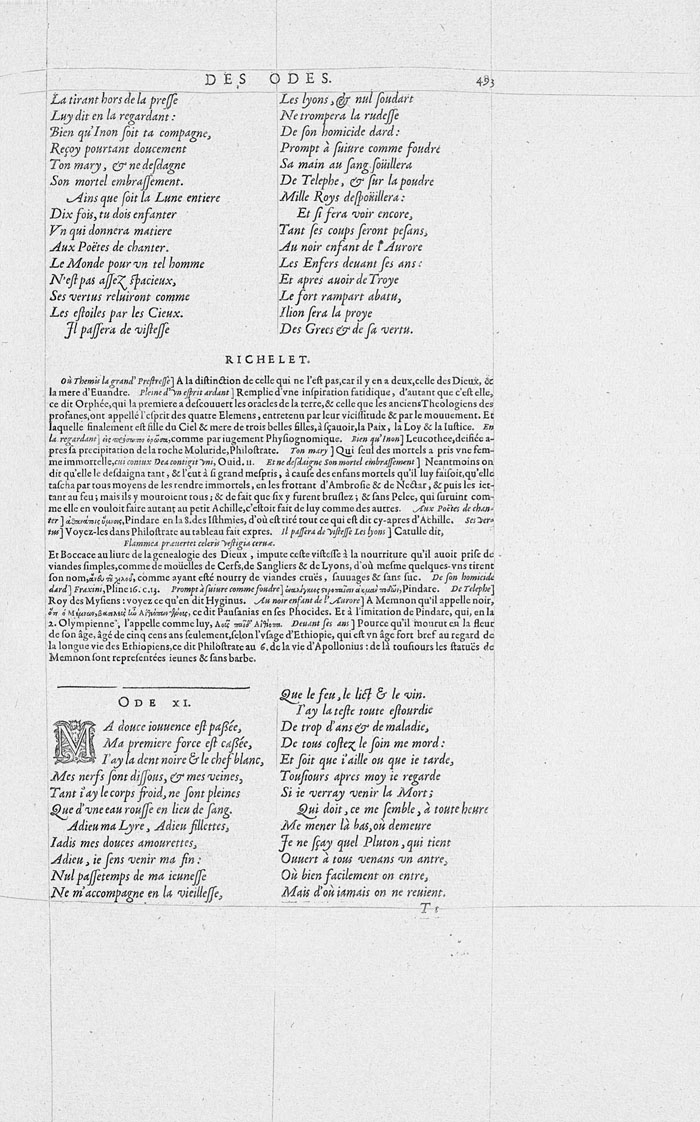 DES ODES. 493
La tirant hors de la presse
Luy dit en la regardant :
Bien qu'Inon soit ta compagne,
Reçoy pourtant doucement
Ton mary, & ne desdagne
Son mortel embrassement.
Ains que soit la Lune entiere
Dix fois, tu dois enfanter
Vn qui donnera matiere
Aux Poëtes de chanter.
Le Monde pour vn tel homme
N'est pas assez spacieux,
Ses vertus reluiront comme
Les estoiles par les Cieux.
Il passera de vistesse
Les lyons, & nul soudart
Ne trompera la rudesse
De son homicide dard :
Prompt à suiure comme foudre
Sa main au sang soüillera
De Telephe, & sur la poudre
Mille Roys despoüillera :
Et si fera voir encore,
Tant ses coups seront pesans,
Au noir enfant de l'Aurore
Les Enfers deuant ses ans :
Et apres auoir de Troye
Le fort rampart abatu,
Ilion sera la proye
Des Grecs & de sa vertu.
RICHELET.
Où Themis la grand' Prestresse] A la distinction de celle qui ne l'est pas, car il y en a deux, celle des Dieux, &
la mere d'Euandre. Pleine d'vn esprit ardant] Remplie d'vne inspiration fatidique, d'autant que c'est elle,
ce dit Orphée, qui la premiere a descouuert les oracles de la terre, & celle que les anciens Theologiens des
profanes, ont appellé l'esprit des quatre Elemens, entretenu par leur vicissitude & par le mouuement. Et
laquelle finalement est fille du Ciel & mere de trois belles filles, à sçauoir, la Paix, la Loy & la Iustice. En
la regardant] comme par iugement Physiognomique. Bien qu'Inon] Leucothee, deifiée a-
pres sa precipitation de la roche Moluride, Philostrate. Ton mary] Qui seul des mortels a pris vne fem-
me immortelle, cui coniux Dea contigit vni, Ouid. 11. Et ne desdaigne Son mortel embrassement] Neantmoins on
dit qu'elle le desdaigna tant, & l'eut à si grand mespris, à cause des enfans mortels qu'il luy faisoit, qu'elle
tascha par tous moyens de les rendre immortels, en les frottant d'Ambrosie & de Nectar, & puis les iet-
tant au feu ; mais ils y mouroient tous ; & de fait que six y furent bruslez ; & sans Pelee, qui suruint com-
me elle en vouloit faire autant au petit Achille, c'estoit fait de luy comme des autres. Aux Poëtes de chan-
ter] Pindare en la 8. des Isthmies, d'où est tiré tout ce qui est dit cy-apres d'Achille. Ses ver-
tus] Voyez-les dans Philostrate au tableau fait expres. Il passera de vistesse Les lyons] Catulle dit,
Flammea præuertet celeris vestigia ceruæ.
Et Boccace au liure de la genealogie des Dieux, impute ceste vistesse à la nourriture qu'il auoit prise de
viandes simples, comme de moüelles de Cerfs, de Sangliers & de Lyons, d'où mesme quelques-vns tirent
son nom, comme ayant esté nourry de viandes cruës, sauuages & sans suc. De son homicide
dard] Fraxini, Pline 16. c. 13. Prompt à suiure comme foudre] Pindare. De Telephe]
Roy des Mysiens : voyez ce qu'en dit Hyginus. Au noir enfant de l'Aurore] A Memnon qu'il appelle noir,
ce dit Pausanias en ses Phocides. Et à l'imitation de Pindare, qui, en la
2. Olympienne, l'appelle comme luy, Deuant ses ans] Pource qu'il mourut en la fleur
de son âge, âgé de cinq cens ans seulement, selon l'vsage d'Ethiopie, qui est vn âge fort bref au regard de
la longue vie des Ethiopiens, ce dit Philostrate au 6. de la vie d'Apollonius : de là tousiours les statuës de
Memnon sont representées ieunes & sans barbe.
ODE XI.
MA douce iouuence est passée,
Ma premiere force est cassée,
I'ay la dent noire & le chef blanc,
Mes nerfs sont dissous, & mes veines,
Tant i'ay le corps froid, ne sont pleines
Que d'vne eau rousse en lieu de sang.
Adieu ma Lyre, Adieu fillettes,
Iadis mes douces amourettes,
Adieu, ie sens venir ma fin :
Nul passetemps de ma ieunesse
Ne m'accompagne en la vieillesse,
Que le feu, le lict & le vin.
I'ay la teste toute estourdie
De trop d'ans & de maladie,
De tous costez le soin me mord :
Et soit que i'aille ou que ie tarde,
Tousiours apres moy ie regarde
Si ie verray venir la Mort ;
Qui doit, ce me semble, à toute heure
Me mener là bas, où demeure
Ie ne sçay quel Pluton, qui tient
Ouuert à tous venans vn antre,
Où bien facilement on entre,
Mais d'où iamais on ne reuient.